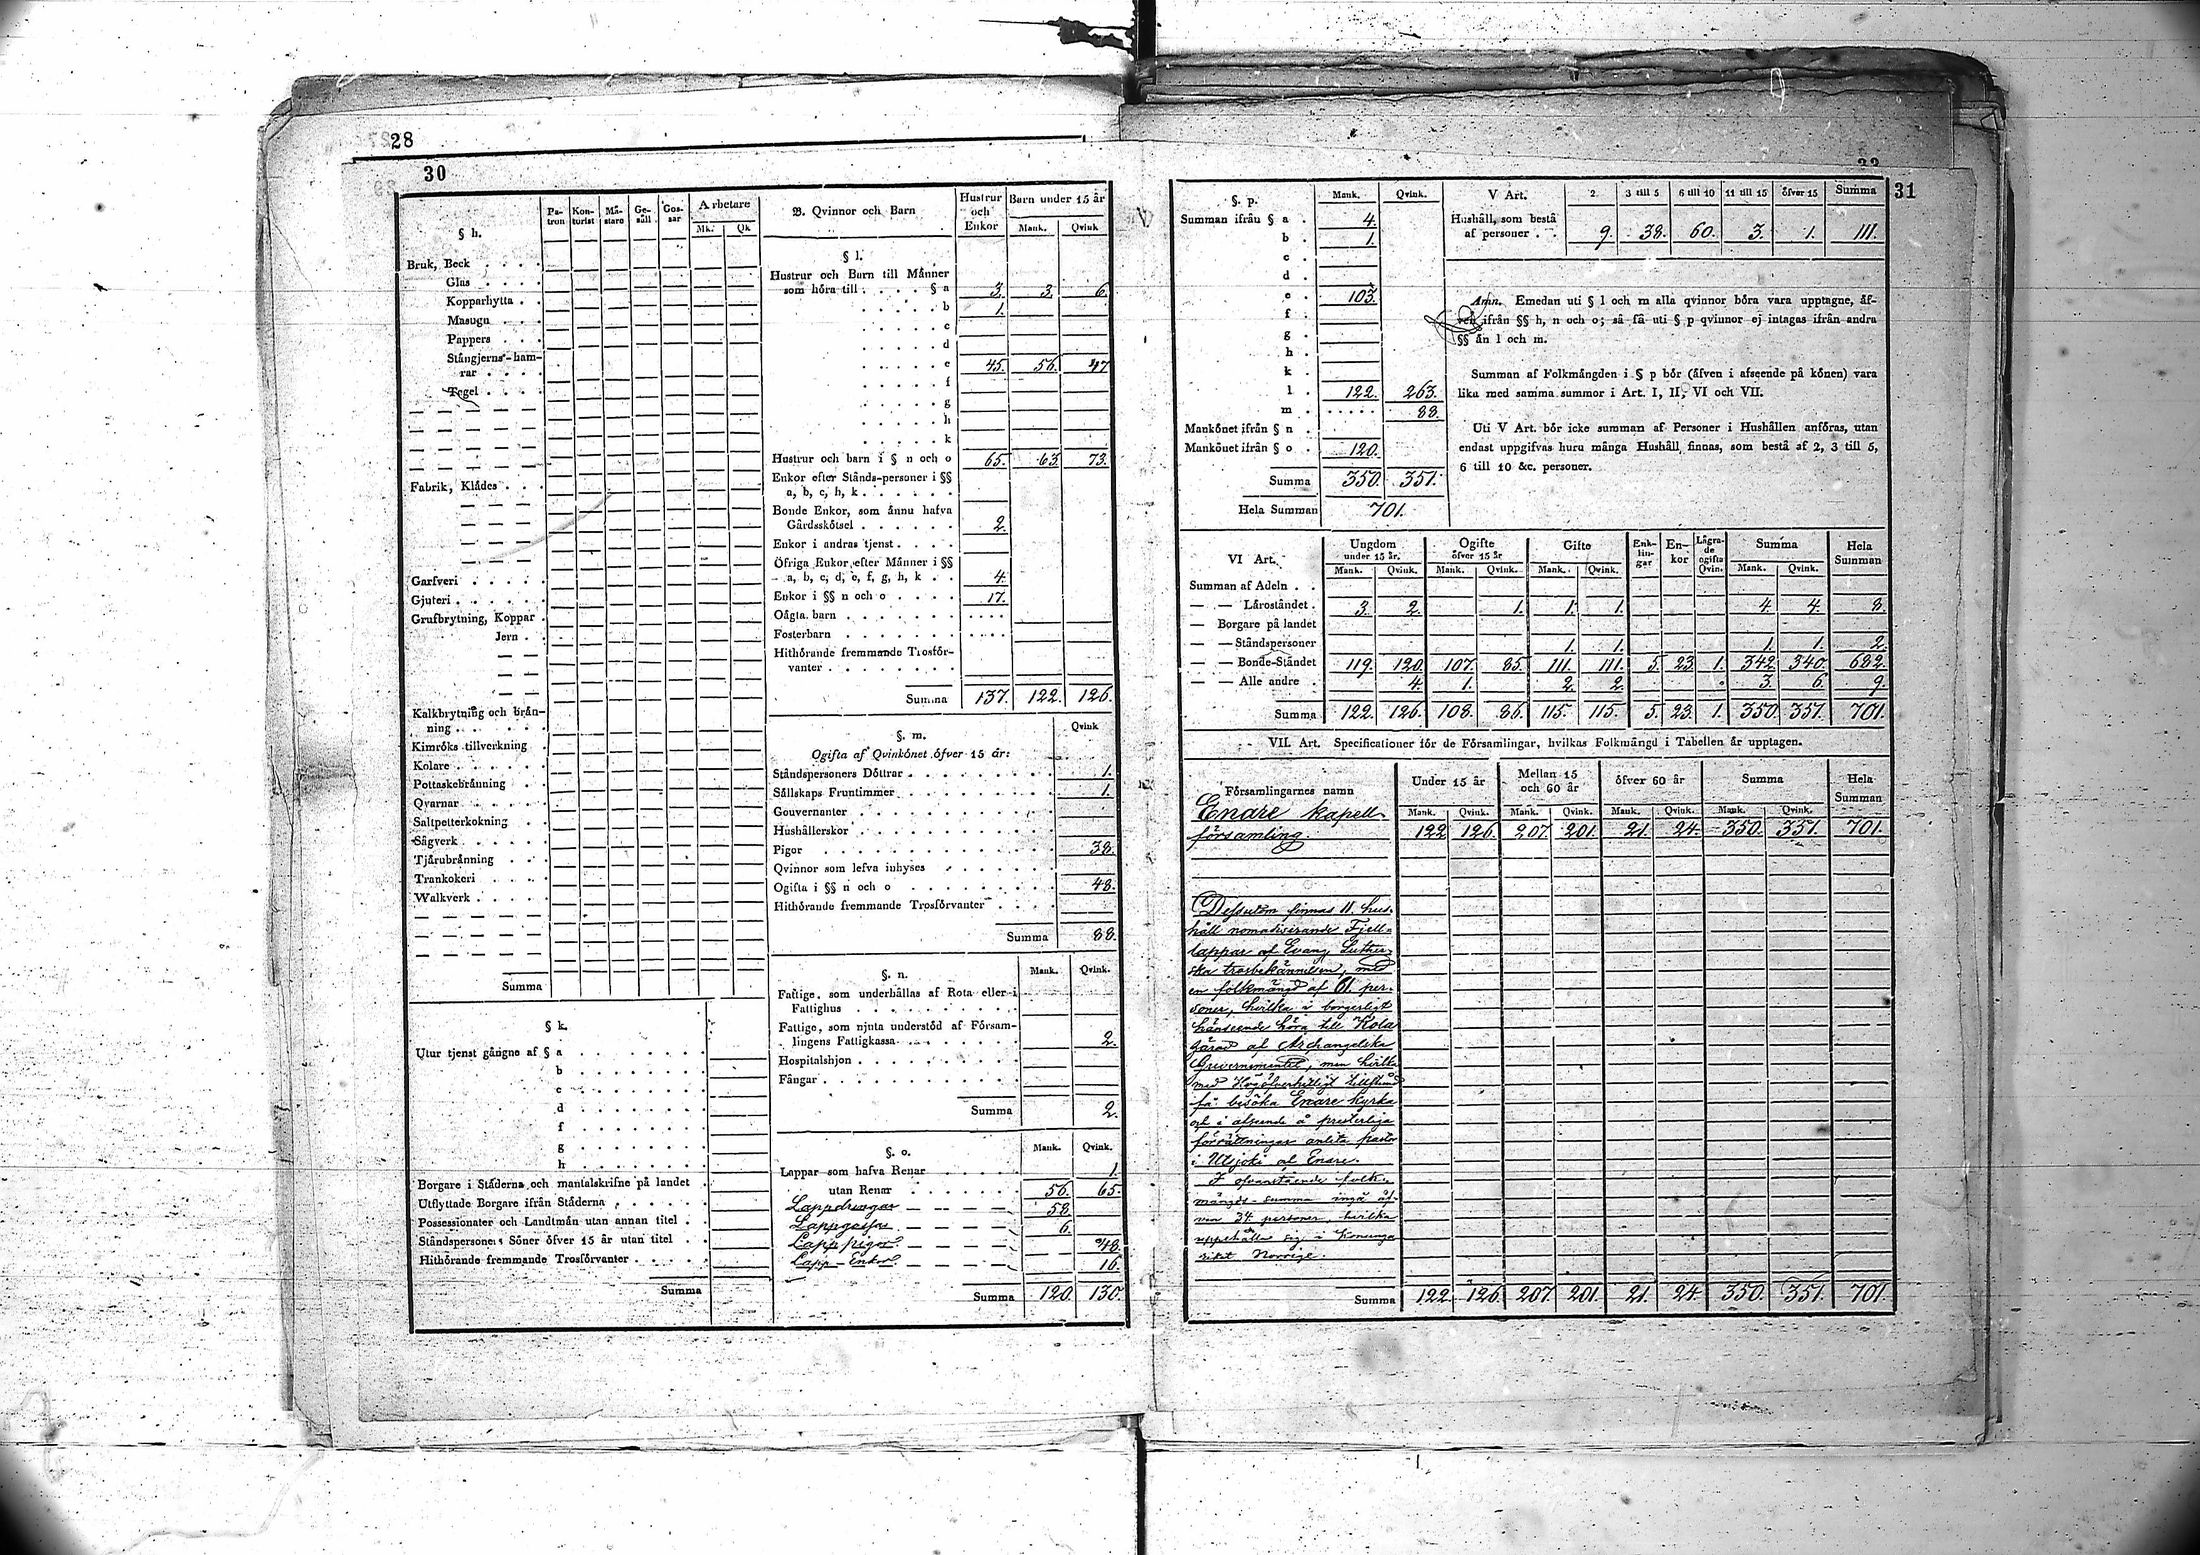 28
30
§ h.
Patron Kontorist Mästare Gesäll Gossar Arbetare
Mk. Qk
Bruk, Beck . . . .
Glas . . . .
Kopparhytta . .
Masugn . . .
Pappers . . .
Stångjerns-hamrar . . . .
Tegel . . . .
Fabrik, Klädes . . .
Garfveri . . . . .
Gjuteri . . . . . .
Grufbrytning, Koppar .
Jern . .
Kalkbrytning och bränning . . . . .
Kimröks tillverkning .
Kolare . . . . . .
Pottaskebränning .
Qvarnar . . . . .
Saltpetterkokning .
Sågverk . . . . .
Tjärubränning . . .
Trankokeri . . . .
Walkverk . . . . .
Summa
§ k.
Utur tjenst gångne af § a . . . . . . .
b . . . . . . .
c . . . . . . .
d . . . . . . .
f . . . . . . .
g . . . . . . .
h . . . . . . .
Borgare i Städerna och mantalskrifne på landet .
Utflyttade Borgare ifrån Städerna . . . . .
Possessionater och Landtmän utan annan titel . .
Ståndspersoners Söner öfver 15 år utan titel . .
Hithörande fremmande Trosförvanter . . . . .
Summa
B. Qvinnor och Barn
Hustrur och Enkor
Barn under 15 år
Mank. Qvink
§ l.
Hustrur och Barn till Männer
som höra till . . . . § a 3. 3. 6.
. . . . . b 1.
. . . . . c
. . . . . d
. . . . . e 45. 56. 47
. . . . . f
. . . . . g
. . . . . h
. . . . . k
Hustrur och barn i § n och o 65. 63. 73.
Enkor efter Stånds-personer i §§
a, b, c, h, k . . . . . .
Bonde Enkor, som ännu hafva
Gårdsskötsel . . . . . . 2.
Enkor i andras tjenst . . . .
Öfriga Enkor efter Männer i §§
a, b, c, d, e, f, g, h, k . . 4.
Enkor i §§ n och o . . . . 17.
Oägta barn . . . . . . .
Fosterbarn . . . . . . .
Hithörande fremmande Trosförvanter . . . . . . . .
Summa 137. 122. 126.
§. m. Qvink
Ogifta af Qvinkönet öfver 15 år:
Ståndspersoners Döttrar . . . . . . . . . 1.
Sällskaps Fruntimmer . . . . . . . . . . 1.
Gouvernanter . . . . . . . . . . . . .
Hushållerskor . . . . . . . . . . . . .
Pigor . . . . . . . . . . . . . . 38.
Qvinnor som lefva inhyses . . . . . . . .
Ogifta i §§ n och o . . . . . . . . . . 48.
Hithörande fremmande Trosförvanter . . . .
Summa 88.
§. n. Mank. Qvink.
Fattige, som underhållas af Rota eller i
Fattighus . . . . . . . . . .
Fattige, som njuta understöd af Församlingens Fattigkassa . . . . . . . 2.
Hospitalshjon . . . . . . . . . .
Fångar . . . . . . . . . . . .
Summa 2.
§. o. Mank. Qvink.
Lappar som hafva Renar . . . . . 1.
utan Renar . . . . . . 56. 65.
Lappdrengar 58.
Lappgossar 6.
Lapp pigor 48.
Lapp-Enkor 16.
Summa 120. 130.
31
§. p. Mank. Qvink.
Summan ifrån § a . 4.
b . 1.
c .
d .
e . 103.
f .
g .
h .
k .
l . 122. 263.
m . . . . . . 88.
Mankönet ifrån § n .
Mankönet ifrån § o . 120.
Summa 350. 351.
Hela Summan 701.
V Art. 2. 3 till 5 6 till 10 11 till 15 öfver 15 Summa
Hushåll, som bestå
af personer . . . 9. 38. 60. 3. 1. 111.
Anm. Emedan uti § l och m alla qvinnor böra vara upptagne, äfven ifrån §§ h, n och o; så få uti § p qvinnor ej intagas ifrån andra
§§ än l och m.
Summan af Folkmängden i § p bör (äfven i afseende på könen) vara
lika med samma summor i Art. I, II, VI och VII.
Uti V Art. bör icke summan af Personer i Hushållen anföras, utan
endast uppgifvas huru många Hushåll finnas, som bestå af 2, 3 till 5,
6 till 10 &c. personer.
VI Art.
Ungdom under 15 år. Ogifte öfver 15 år Gifte Enklingar Enkor Lägrade ogifta Qvin. Summa Hela Summan
Mank. Qvink. Mank. Qvink. Mank. Qvink. Mank. Qvink.
Summan af Adeln . .
— — Läroståndet . 3. 2. 1. 1. 1. 4. 4. 8.
— Borgare på landet
— — Ståndspersoner 1. 1. 1. 1. 2.
— — Bonde-Ståndet 119. 120. 107. 85. 111. 111. 5. 23. 1. 342. 340. 682.
— — Alle andre . 4. 1. 2. 2. 3. 6. 9.
Summa 122. 126. 108. 86. 115. 115. 5. 23. 1. 350. 351. 701.
VII. Art. Specificationer för de Församlingar, hvilkas Folkmängd i Tabellen är upptagen.
Församlingarnes namn
Under 15 år Mellan 15 och 60 år öfver 60 år Summa Hela Summan
Mank. Qvink. Mank. Qvink. Mank. Qvink. Mank. Qvink.
Enare kapell-
församling. 122 126. 207. 201. 21. 24. 350. 351. 701.
Dessutom finnas 11. hus-
håll nomadiserande Fjell-
lappar af Evang. Luther-
ska trosbekännelsen, med
en folkmängd af 61. per-
soner, hvilka i borgerligt
hänseende höra till Kola
gärad af Archangelska
Guvernementet, men hvilka
med Högöfverhetligt tillstånd
få besöka Enare kyrka
och i afseende å presterliga
förrättningar anlita pastor
i Utsjoki och Enare.
I ofvanstående folk-
mängds-summa ingå äf-
ven 34 personer, hvilka
uppehålla sig i Konunga
riket Norrige.
Summa 122. 126. 207. 201. 21. 24. 350. 351. 701.